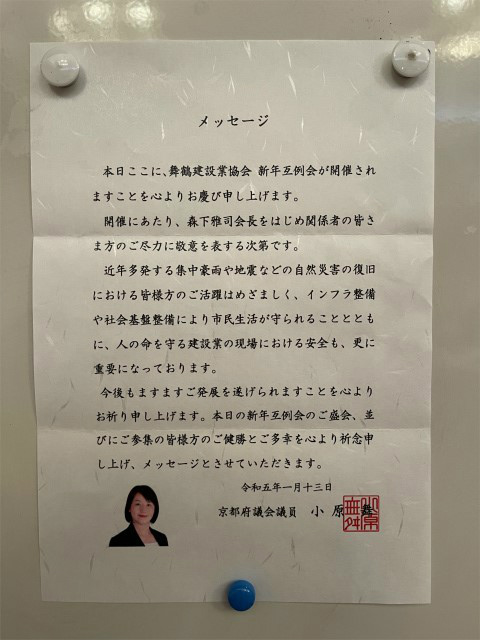 メッセージ
本日ここに、舞鶴建設業協会 新年互例会が開催され
ますことを心よりお慶び申し上げます。
開催にあたり、森下雅司会長をはじめ関係者の皆さ
ま方のご尽力に敬意を表する次第です。
近年多発する集中豪雨や地震などの自然災害の復旧
における皆様方のご活躍はめざましく、インフラ整備
や社会基盤整備により市民生活が守られることととも
に、人の命を守る建設業の現場における安全も、更に
重要になっております。
今後もますますご発展を遂げられますことを心より
お祈り申し上げます。本日の新年互例会のご盛会、並
びにご参集の皆様方のご健勝とご多幸を心より祈念申
し上げ、メッセージとさせていただきます。
令和五年一月十三日
京都府議会議員 小原 舞